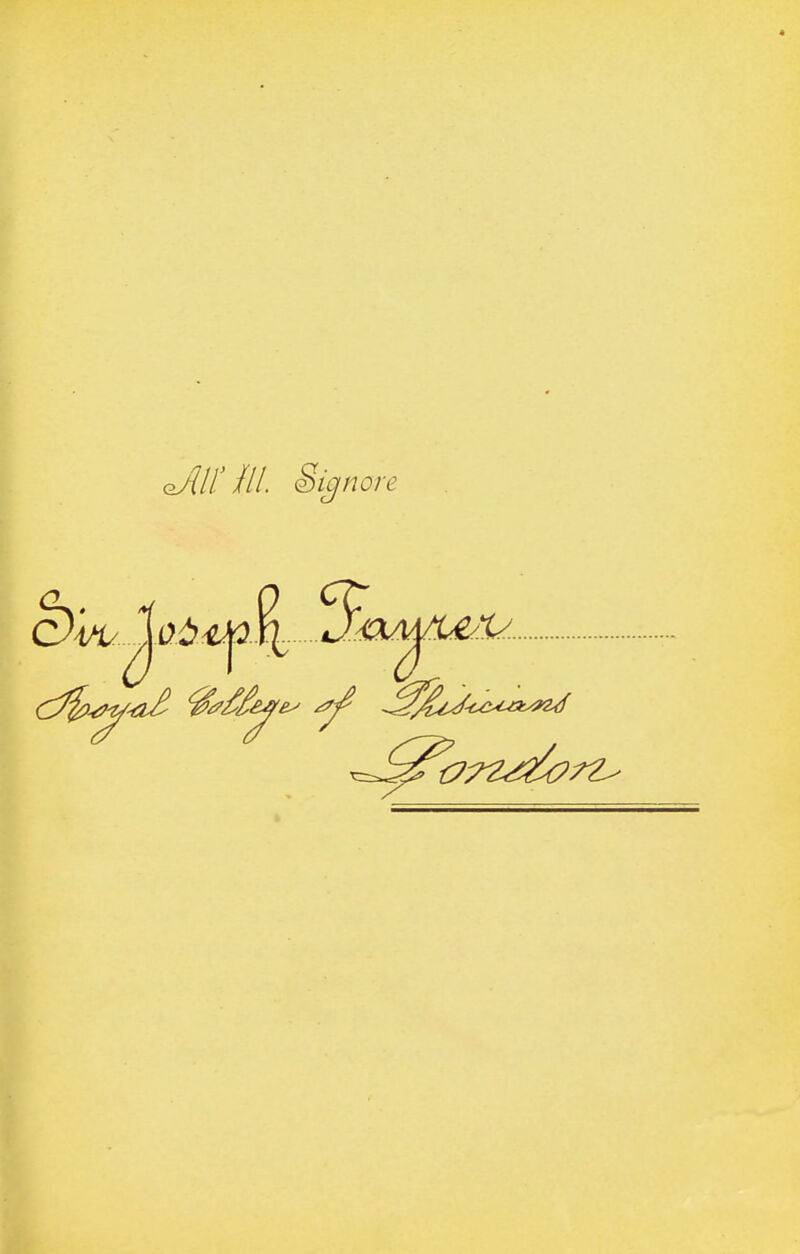 All' Ill. Signore
Sir Joseph Fayrer
Royal College of Physicians
London